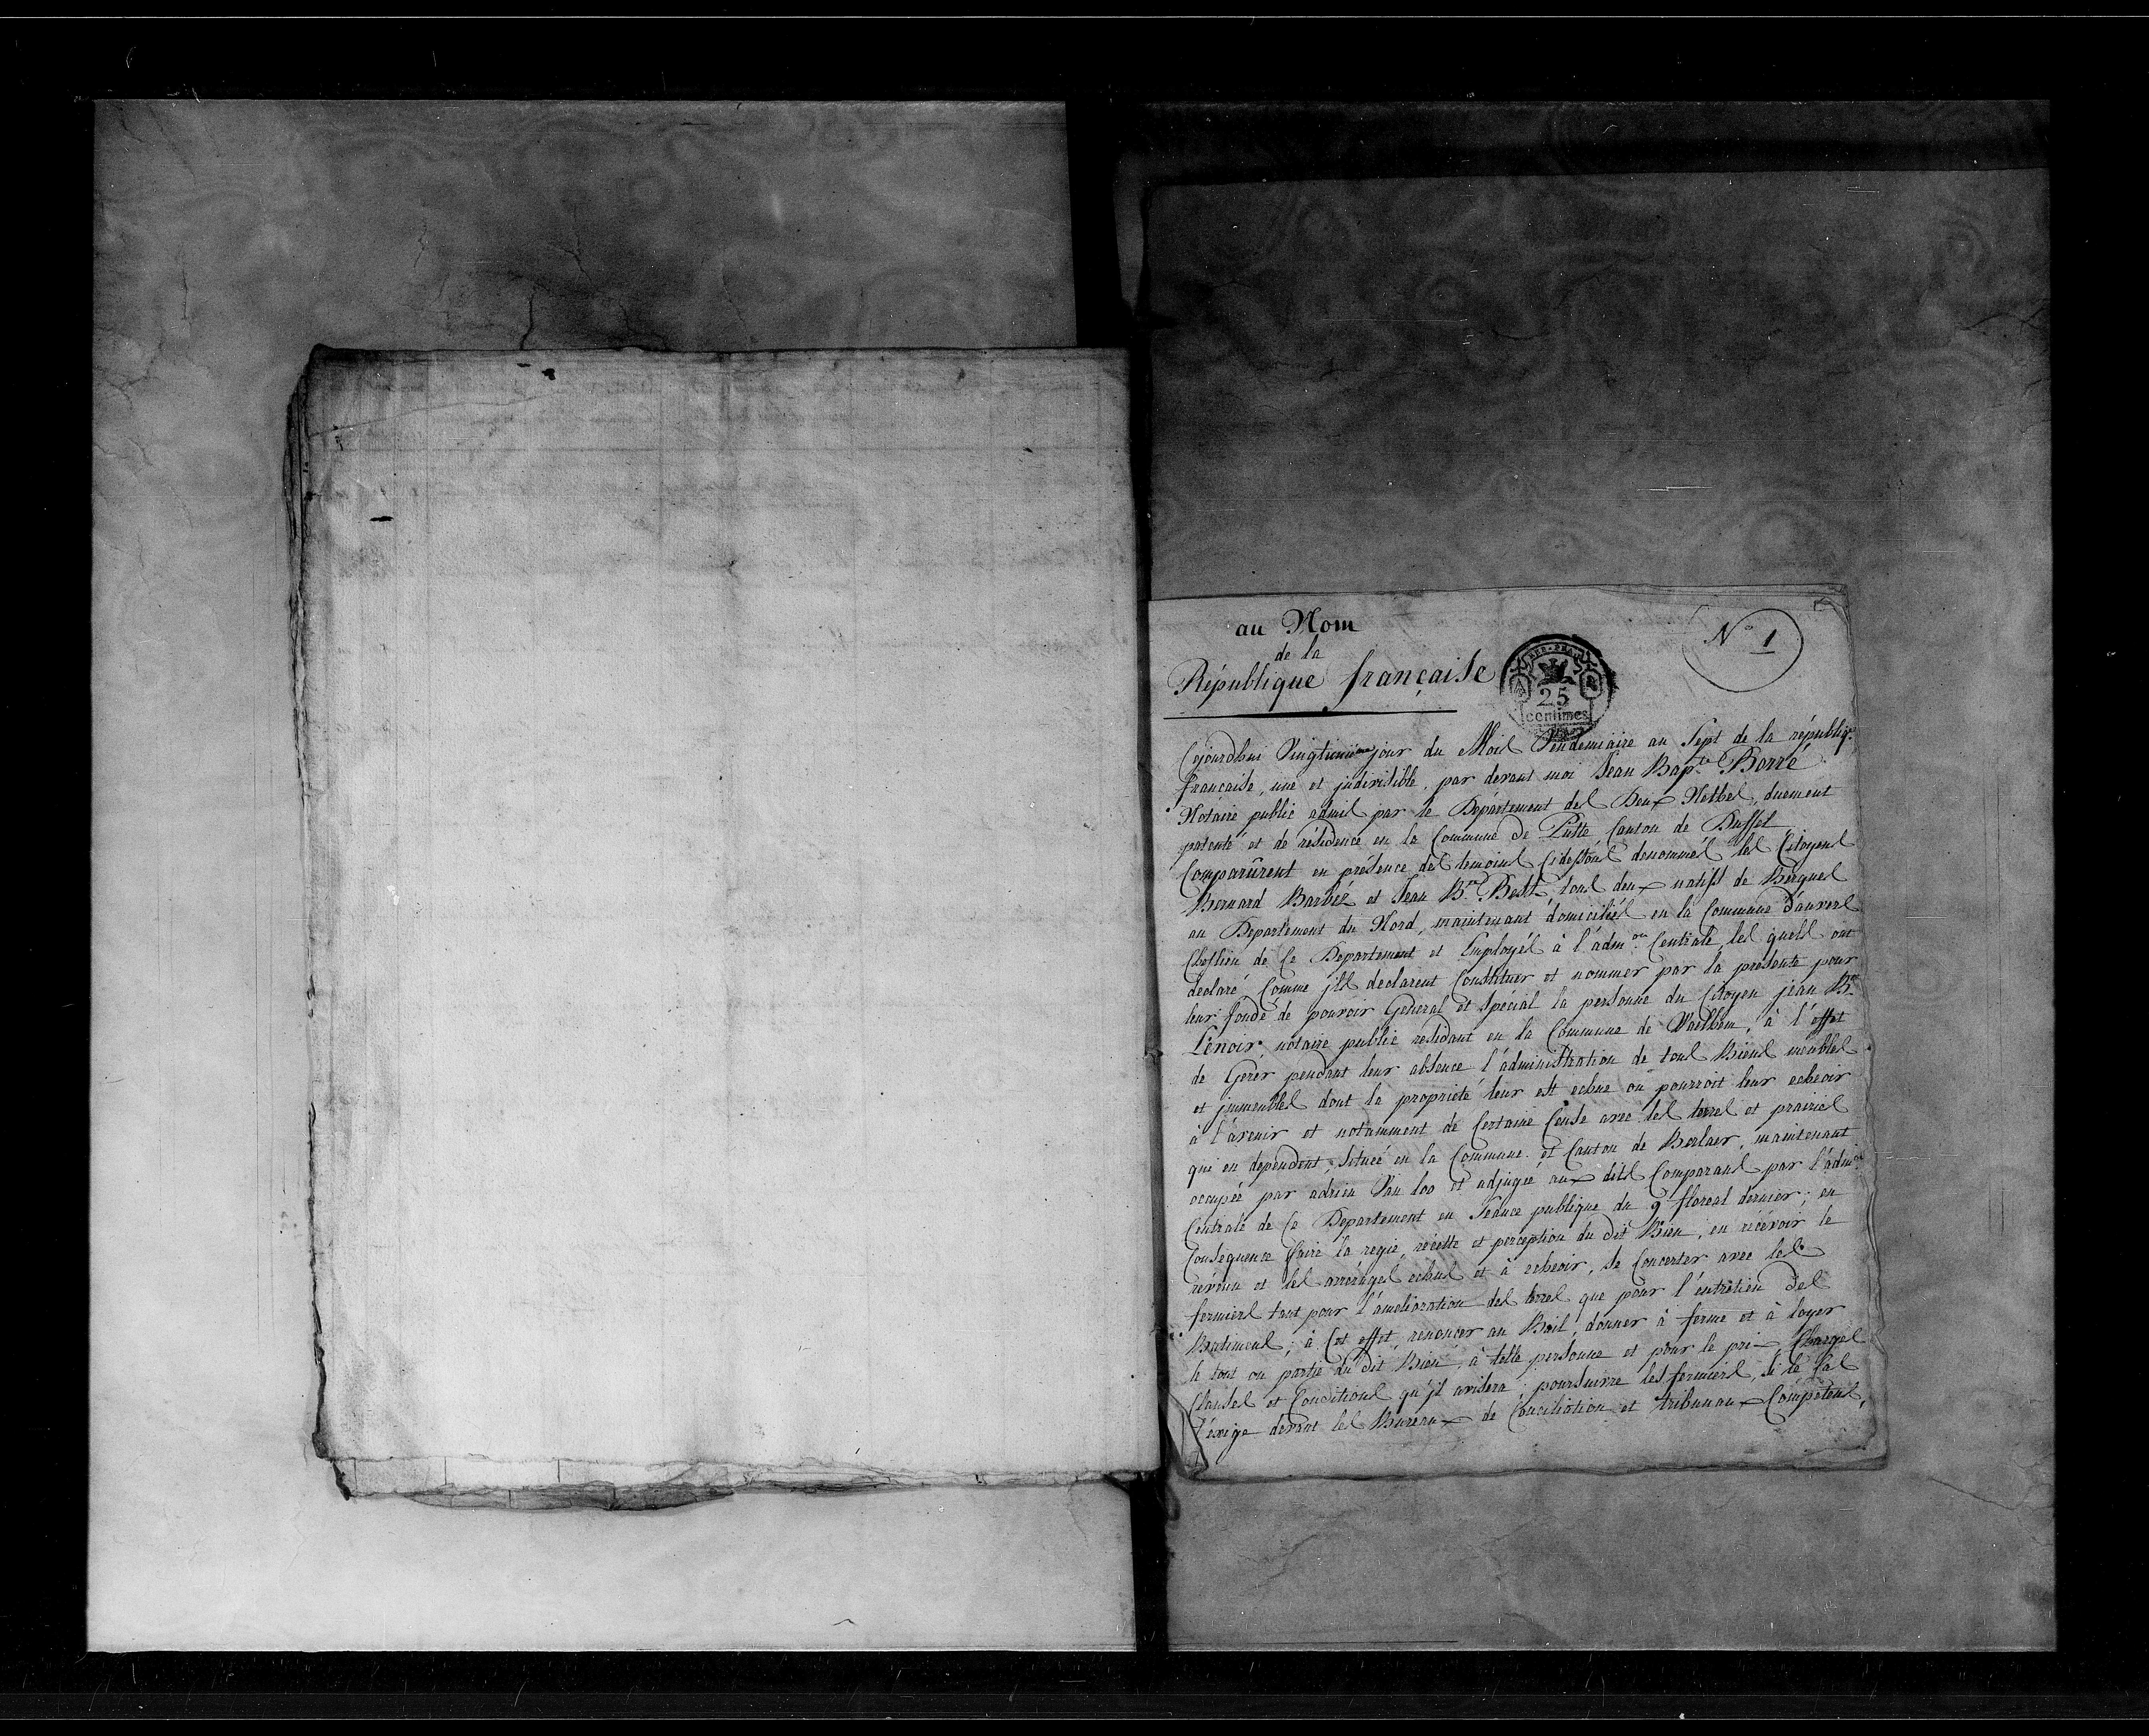 au Nom
de la
République française
N° 1
REP. FRA.
25
centimes
Cejourdhui Vingtieme jour du Mois Vendemiaire an Sept de la républiq.
française, une et indivisible, par devant moi Jean Bap.te Borré
Notaire public admis par le Département des Deux Nethes, duement
patenté et de résidence en la Commune de Putte Canton de Duffel
Comparûrent en présence des temoins Cidessous denommés les Citoyens
Bernard Barbéz et Jean B.te Best, tous deux natifs de Bergues
au Departement du Nord, maintenant domiciliés en la Commune d'anvers
Cheflieu de Ce Departement et Employés à l'adm.on Centrale, les quels ont
declaré Comme jls declarent Constituer et nommer par la presente pour
leur fondé de pouvoir General et Spécial la personne du Citoyen jean B.te
Lenoir, notaire public residant en la Commune de Waelhem, à l'effet
de Gerer pendant leur absence l'administration de tous Biens meubles
et jmmeubles dont la propriété leur est echue ou pourroit leur echeoir
à l'avenir et notamment de Certaine Cense avec les terres et prairies
qui en dependent, Située en la Commune et Canton de Berlaer, maintenant
occupée par adrien Van loo et adjugée aux dits Comparans par l'adm.on
Centrale de Ce Departement en Seance publique du 9 floreal dernier; en
Consequence faire la regie, recette et perception du dit Bien, en récévoir le
révenu et les arrérages echus et à echeoir, se Concerter avec les
fermiers tant pour l'amelioration des terres que pour l'entretien des
Batimens; à Cet effet renoncer au Bail, donner à ferme et à loyer
le tout ou partie du dit Bien, à telle personne et pour le prix Charges
Clauses et Conditions qu'jl avisera; poursuivre les fermiers, si le Cas
l'éxige devant les Bureaux de Conciliation et tribunaux Compétens,